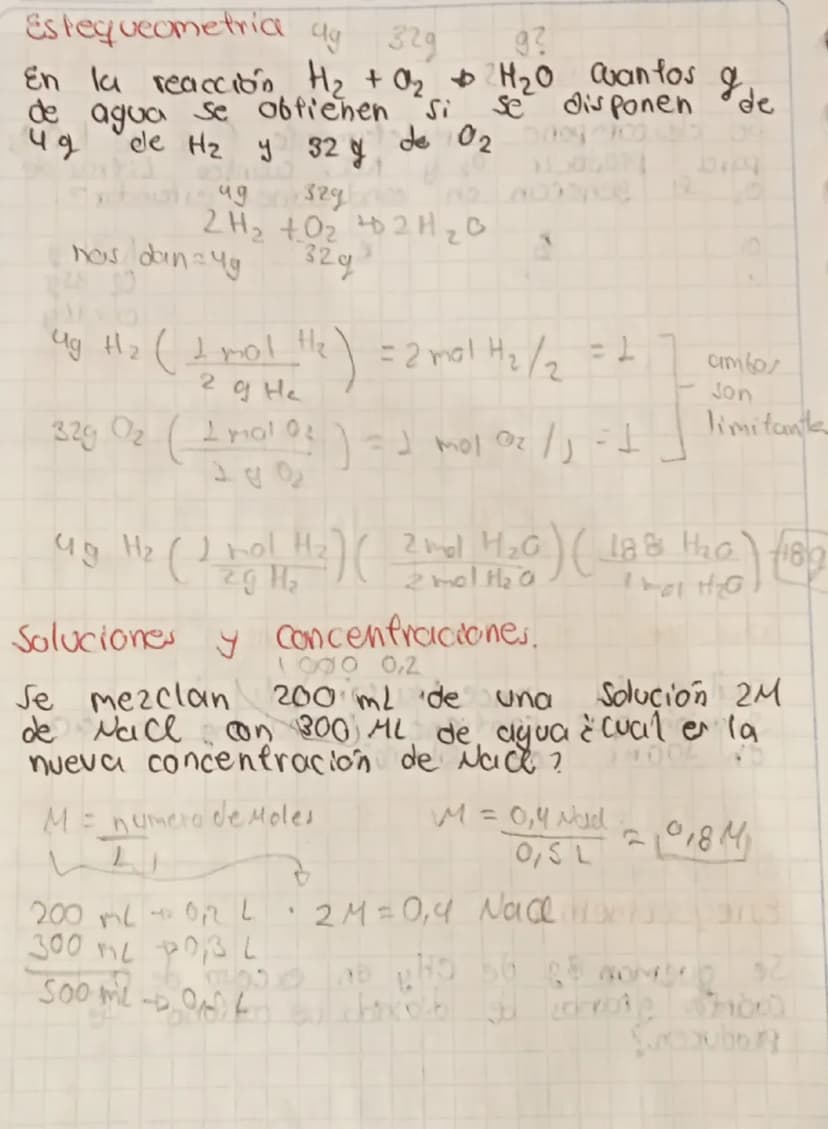 Estequeometria 4g 32g g?
En la reacción H₂ + O₂ → 2H₂O cuantos g de
de agua se obtienen si se disponen
4g de H₂ y 32g de O₂
4g 32g
2H₂ + O₂ → 2H₂O
nos dan = 4g 32g
4g H₂ (1 mol H₂ / 2 g H₂) = 2 mol H₂/2 = 1
ambos son limitante
32g O₂ (1 mol O₂ / g O₂) = 1 mol O₂/1 = 1
4g H₂ (1 mol H₂ / 2g H₂) (2 mol H₂O / 2 mol H₂O) (18g H₂O / 1 mol H₂O)
Soluciones y concentraciones.
1000 0,2
Se mezclan 200 mL de una solución 2M
de NaCl con 300 ML de agua ¿cual es la
nueva concentración de NaCl?
M = numero de Moles / L
M = 0,4 NaCl / 0,5 L = 0,8 M
200 mL → 0,2 L · 2M = 0,4 NaCl
300 mL → 0,3 L
500 ml → 0,5 L